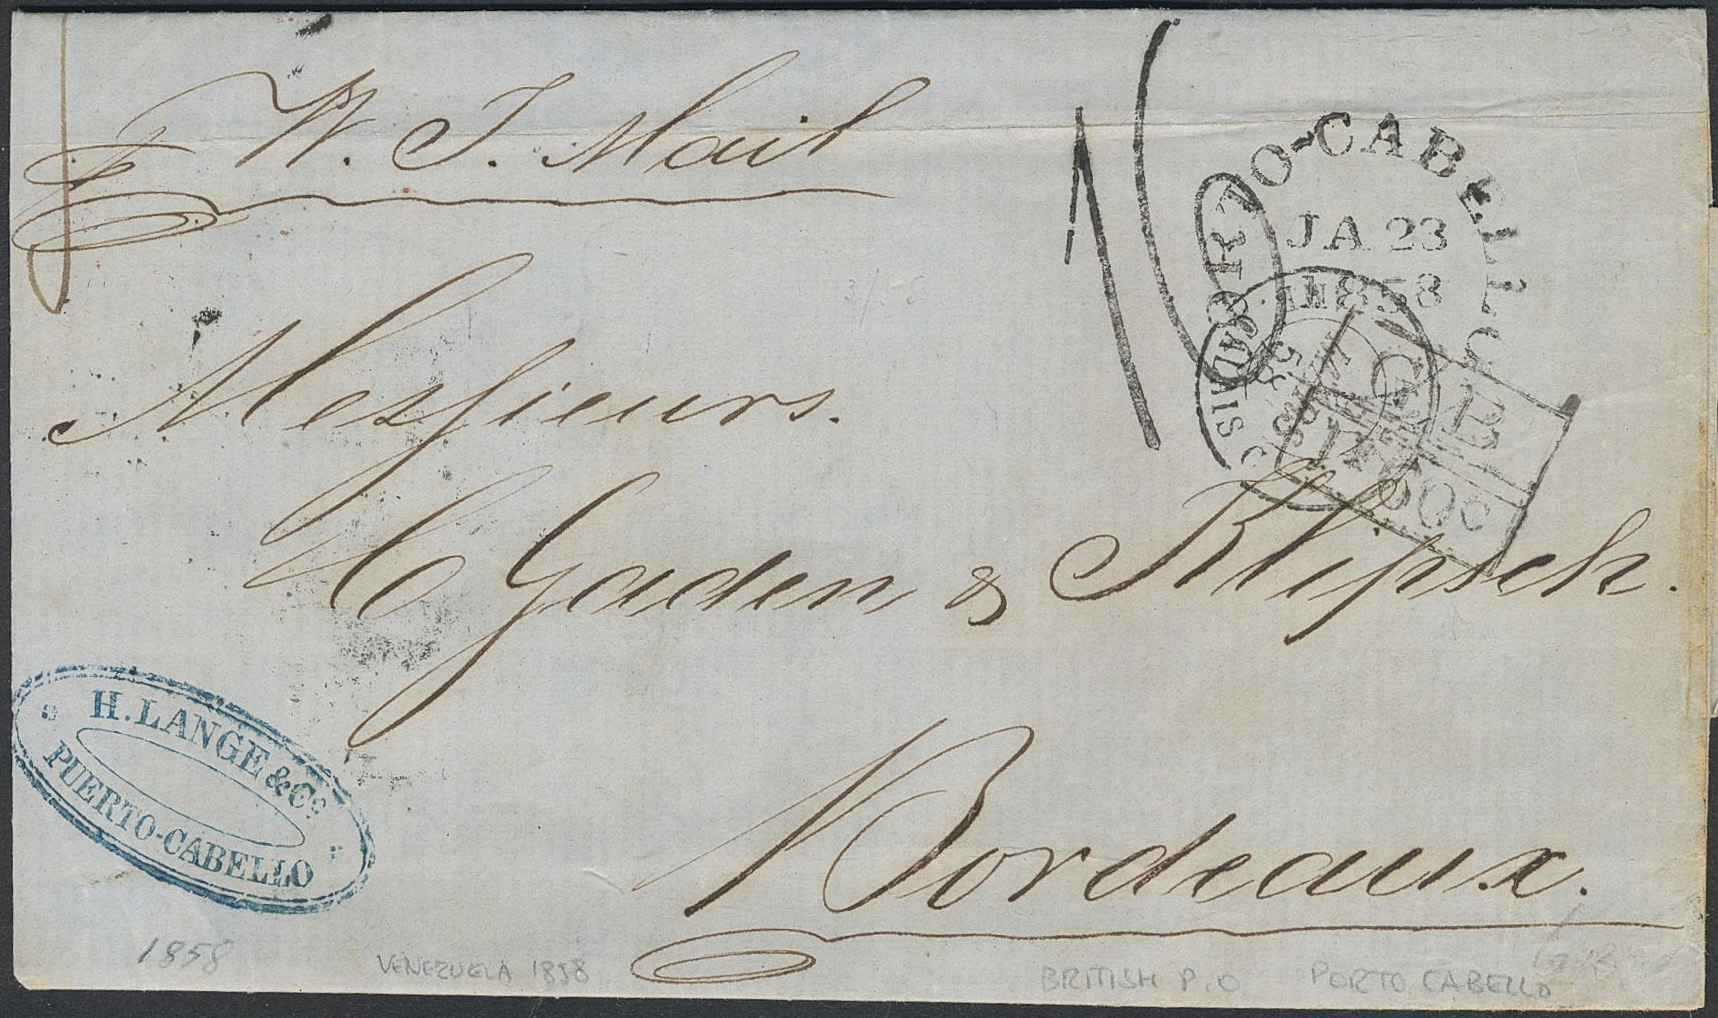 W. I. Mail
PORTO-CABELLO
JA 23
1858
3/58
GB
1F60c
Messieurs.
Gaden & Klipsch.
Bordeaux.
H. LANGE & Co.
PUERTO-CABELLO
1858
VENEZUELA 1858
BRITISH P.O.
PORTO CABELLO